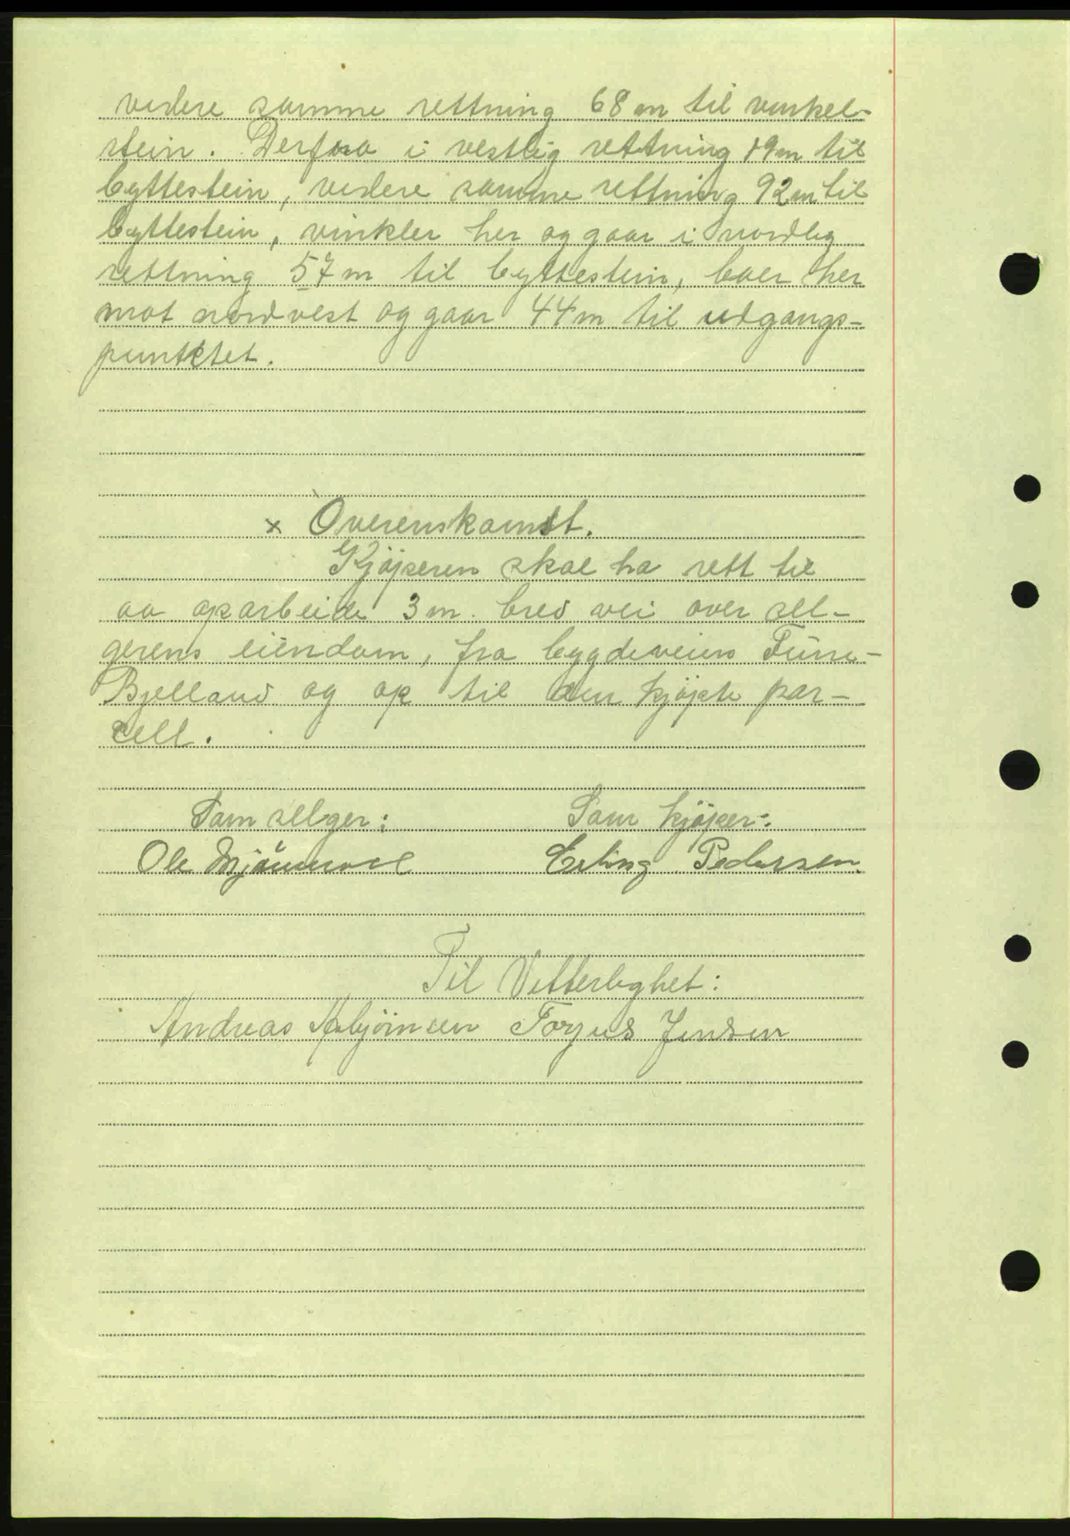 videre samme rettning 68 m til vinkel-
stein. Derfra i vestlig rettning 19 m til
byttestein, videre samme rettning 92 m til
byttestein, vinkler her og gaar i nordlig
rettning 57 m til byttestein, boer her
mot nordvest og gaar 44 m til udgangs-
punktet.
x Overenskomst.
Kjöperen skal ha rett til
aa oparbeide 3 m. bred vei over sel-
gerens eiendom, fra bygdeveien Fuue-
Bjelland og op til den kjöpte par-
cell.
Som selger: Som kjöper:
Ole Erling Pedersen.
Til Vitterlighet:
Andreas Torjus Jensen